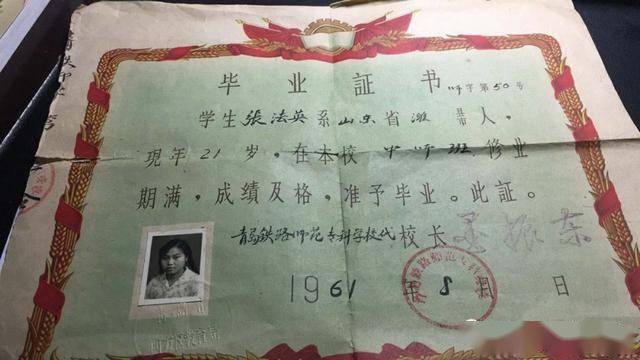 毕业証书
师字第50号
学生張法英系山东省潍县市人，
現年21岁，在本校中师班修业
期满，成績及格，准予毕业。此証。
青島鉄路师范专科学校代校长
1961年8月日